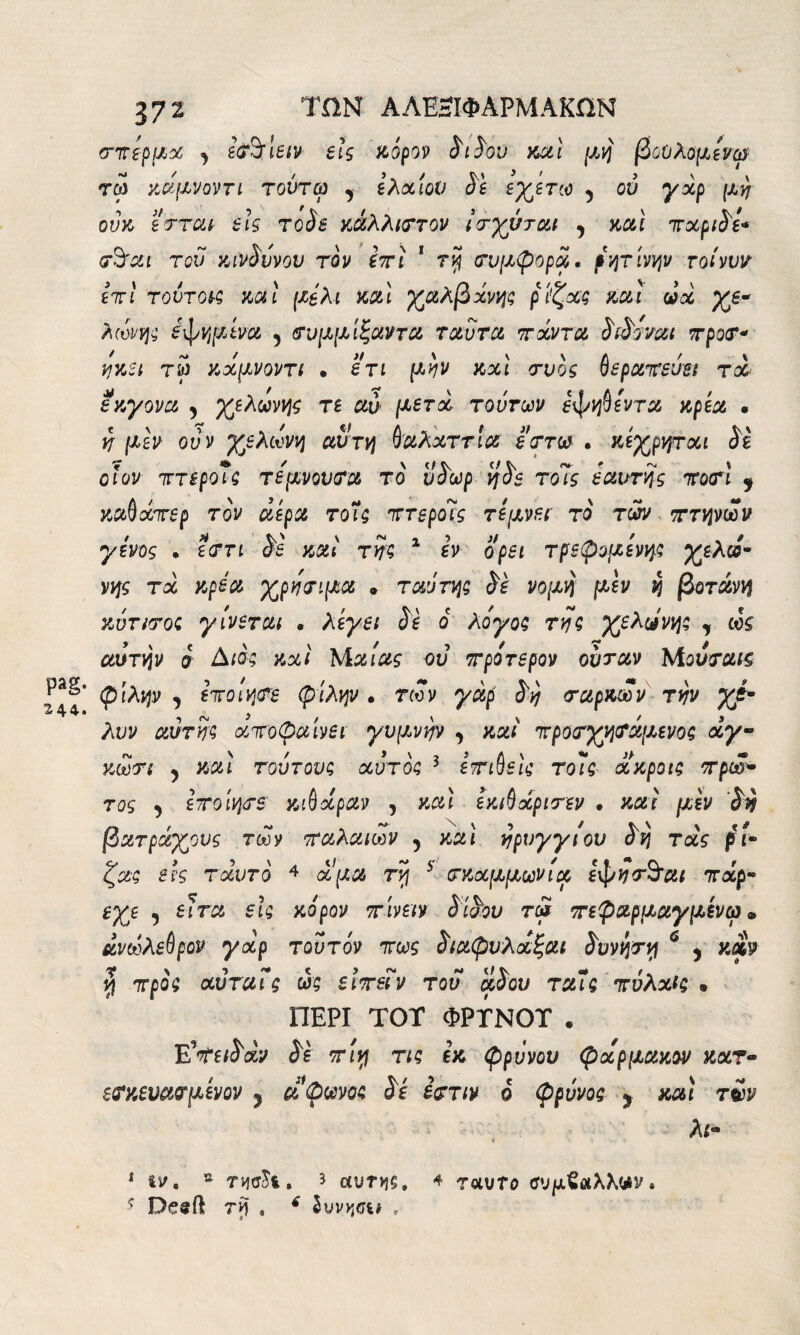 372 ΤΩΝ ΑΛΕΞΙΦΑΡΜΑΚΩΝ
σπέρμα, ἐσθίειν εἰς κόρον δίδου καὶ μὴ βουλομένῳ
τῷ κάμνοντι τούτῳ, ἐλαίου δὲ ἐχέτω, οὐ γὰρ μὴ
οὐκ ἔσται εἰς τόδε κάλλιστον ἰσχύται, καὶ παριδέ-
σθαι τοῦ κινδύνου τὸν ἐπὶ ¹ τῇ συμφορᾷ. ῥητίνην τοίνυν
ἐπὶ τούτοις καὶ μέλι καὶ χαλβάνης ῥίζας καὶ ὠὰ χε-
λώνης ἑψημένα, συμμίξαντα ταῦτα πάντα διδόναι προσ-
ήκει τῷ κάμνοντι. ἔτι μὴν καὶ συὸς θεραπεύει τὰ
ἔκγονα, χελώνης τε αὖ μετὰ τούτων ἑψηθέντα κρέα.
ἡ μὲν οὖν χελώνη αὕτη θαλαττία ἔστω. κέχρηται δὲ
οἷον πτεροῖς τέμνουσα τὸ ὕδωρ ἥδε τοῖς ἑαυτῆς ποσὶ,
καθάπερ τὸν ἀέρα τοῖς πτεροῖς τέμνει τὸ τῶν πτηνῶν
γένος. ἔστι δὲ καὶ τῆς ² ἐν ὄρει τρεφομένης χελώ-
νης τὰ κρέα χρήσιμα. ταύτης δὲ νομὴ μὲν ἡ βοτάνη
κύτισος γίνεται. λέγει δὲ ὁ λόγος τῆς χελώνης, ὡς
αὐτὴν ὁ Διὸς καὶ Μαίας οὐ πρότερον οὖσαν Μούσαις
pag. 244. φίλην, ἐποίησε φίλην. τῶν γὰρ δὴ σαρκῶν τὴν χέ-
λυν αὐτῆς ἀποφαίνει γυμνὴν, καὶ προσχησάμενος ἀγ-
κῶσι, καὶ τούτους αὐτὸς ³ ἐπιθεὶς τοῖς ἄκροις πρῶ-
τος, ἐποίησε κιθάραν, καὶ ἐκιθάρισεν. καὶ μὲν δὴ
βατράχους τῶν παλαιῶν, καὶ ἠρυγγίου δὴ τὰς ῥί-
ζας εἰς ταὐτὸ ⁴ ἅμα τῇ ⁵ σκαμμωνίᾳ ἑψῆσθαι πάρ-
εχε, εἶτα εἰς κόρον πίνειν δίδου τῷ πεφαρμαγμένῳ.
ἀνώλεθρον γὰρ τοῦτόν πως διαφυλάξαι δυνήσῃ ⁶, κἂν
ᾖ πρὸς αὐταῖς ὡς εἰπεῖν τοῦ ᾅδου ταῖς πύλαις.
ΠΕΡΙ ΤΟΥ ΦΡΥΝΟΥ.
Ἐπειδὰν δὲ πίῃ τις ἐκ φρύνου φάρμακον κατ-
εσκευασμένον, ἄφωνος δέ ἐστιν ὁ φρύνος, καὶ τῶν
λι-
¹ ἐν. ² τησδὲ. ³ αυτης. ⁴ ταυτο συμβαλλων.
⁵ Deest τῇ. ⁶ δυνησει.